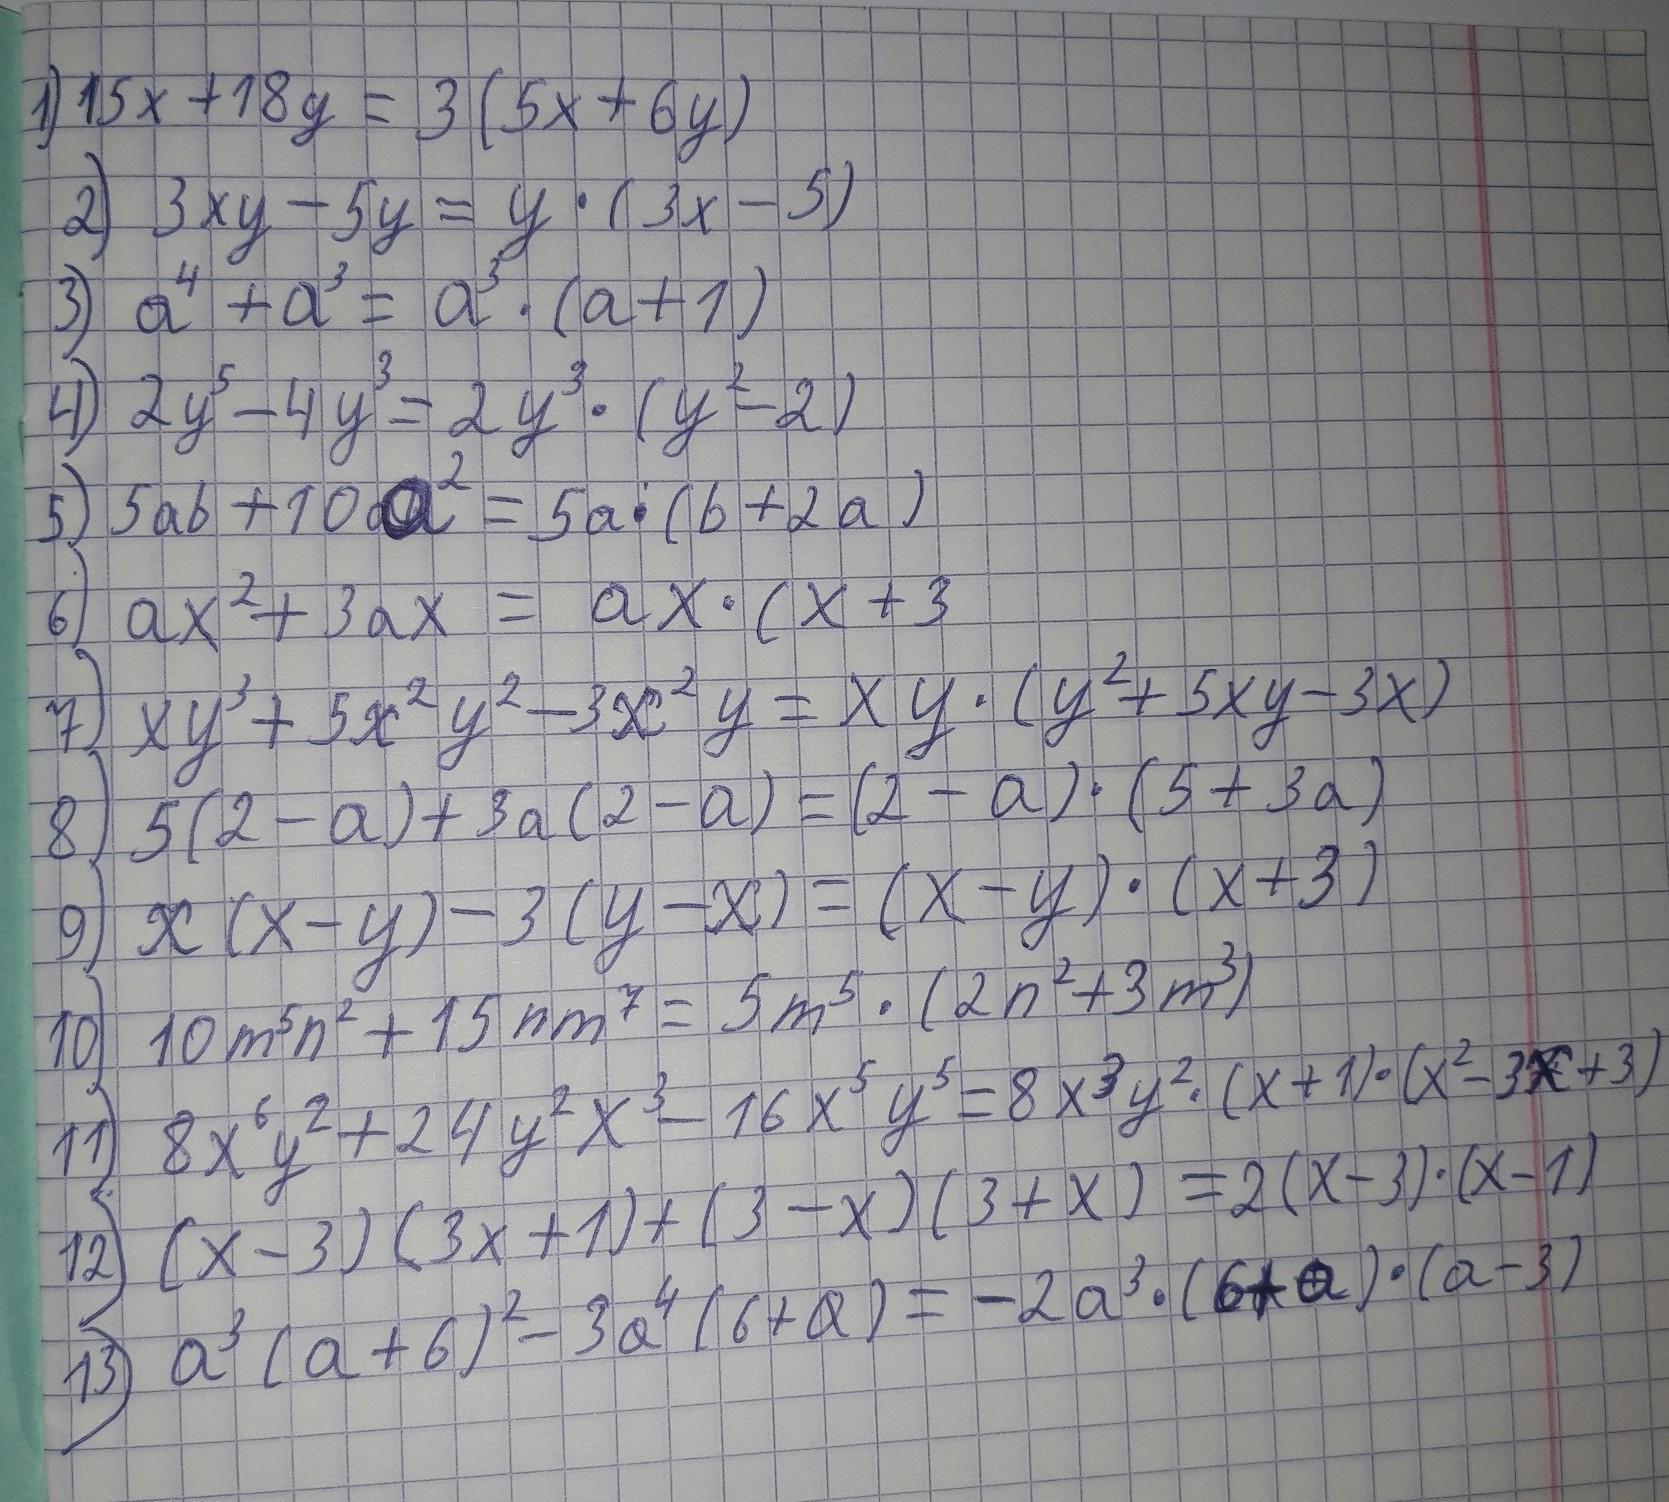 1) 15x+18y = 3(5x+6y)
2) 3xy-5y = y·(3x-5)
3) a⁴+a³ = a³·(a+1)
4) 2y⁵-4y³ = 2y³·(y²-2)
5) 5ab+10a² = 5a·(b+2a)
6) ax²+3ax = ax·(x+3
7) xy³+5x²y²-3x²y = xy·(y²+5xy-3x)
8) 5(2-a)+3a(2-a) = (2-a)·(5+3a)
9) x(x-y)-3(y-x) = (x-y)·(x+3)
10) 10m⁵n²+15nm⁷ = 5m⁵·(2n²+3m³)
11) 8x⁶y²+24y²x³-16x⁵y⁵ = 8x³y²·(x+1)·(x²-3x+3)
12) (x-3)(3x+1)+(3-x)(3+x) = 2(x-3)·(x-1)
13) a³(a+6)²-3a⁴(6+a) = -2a³·(6+a)·(a-3)